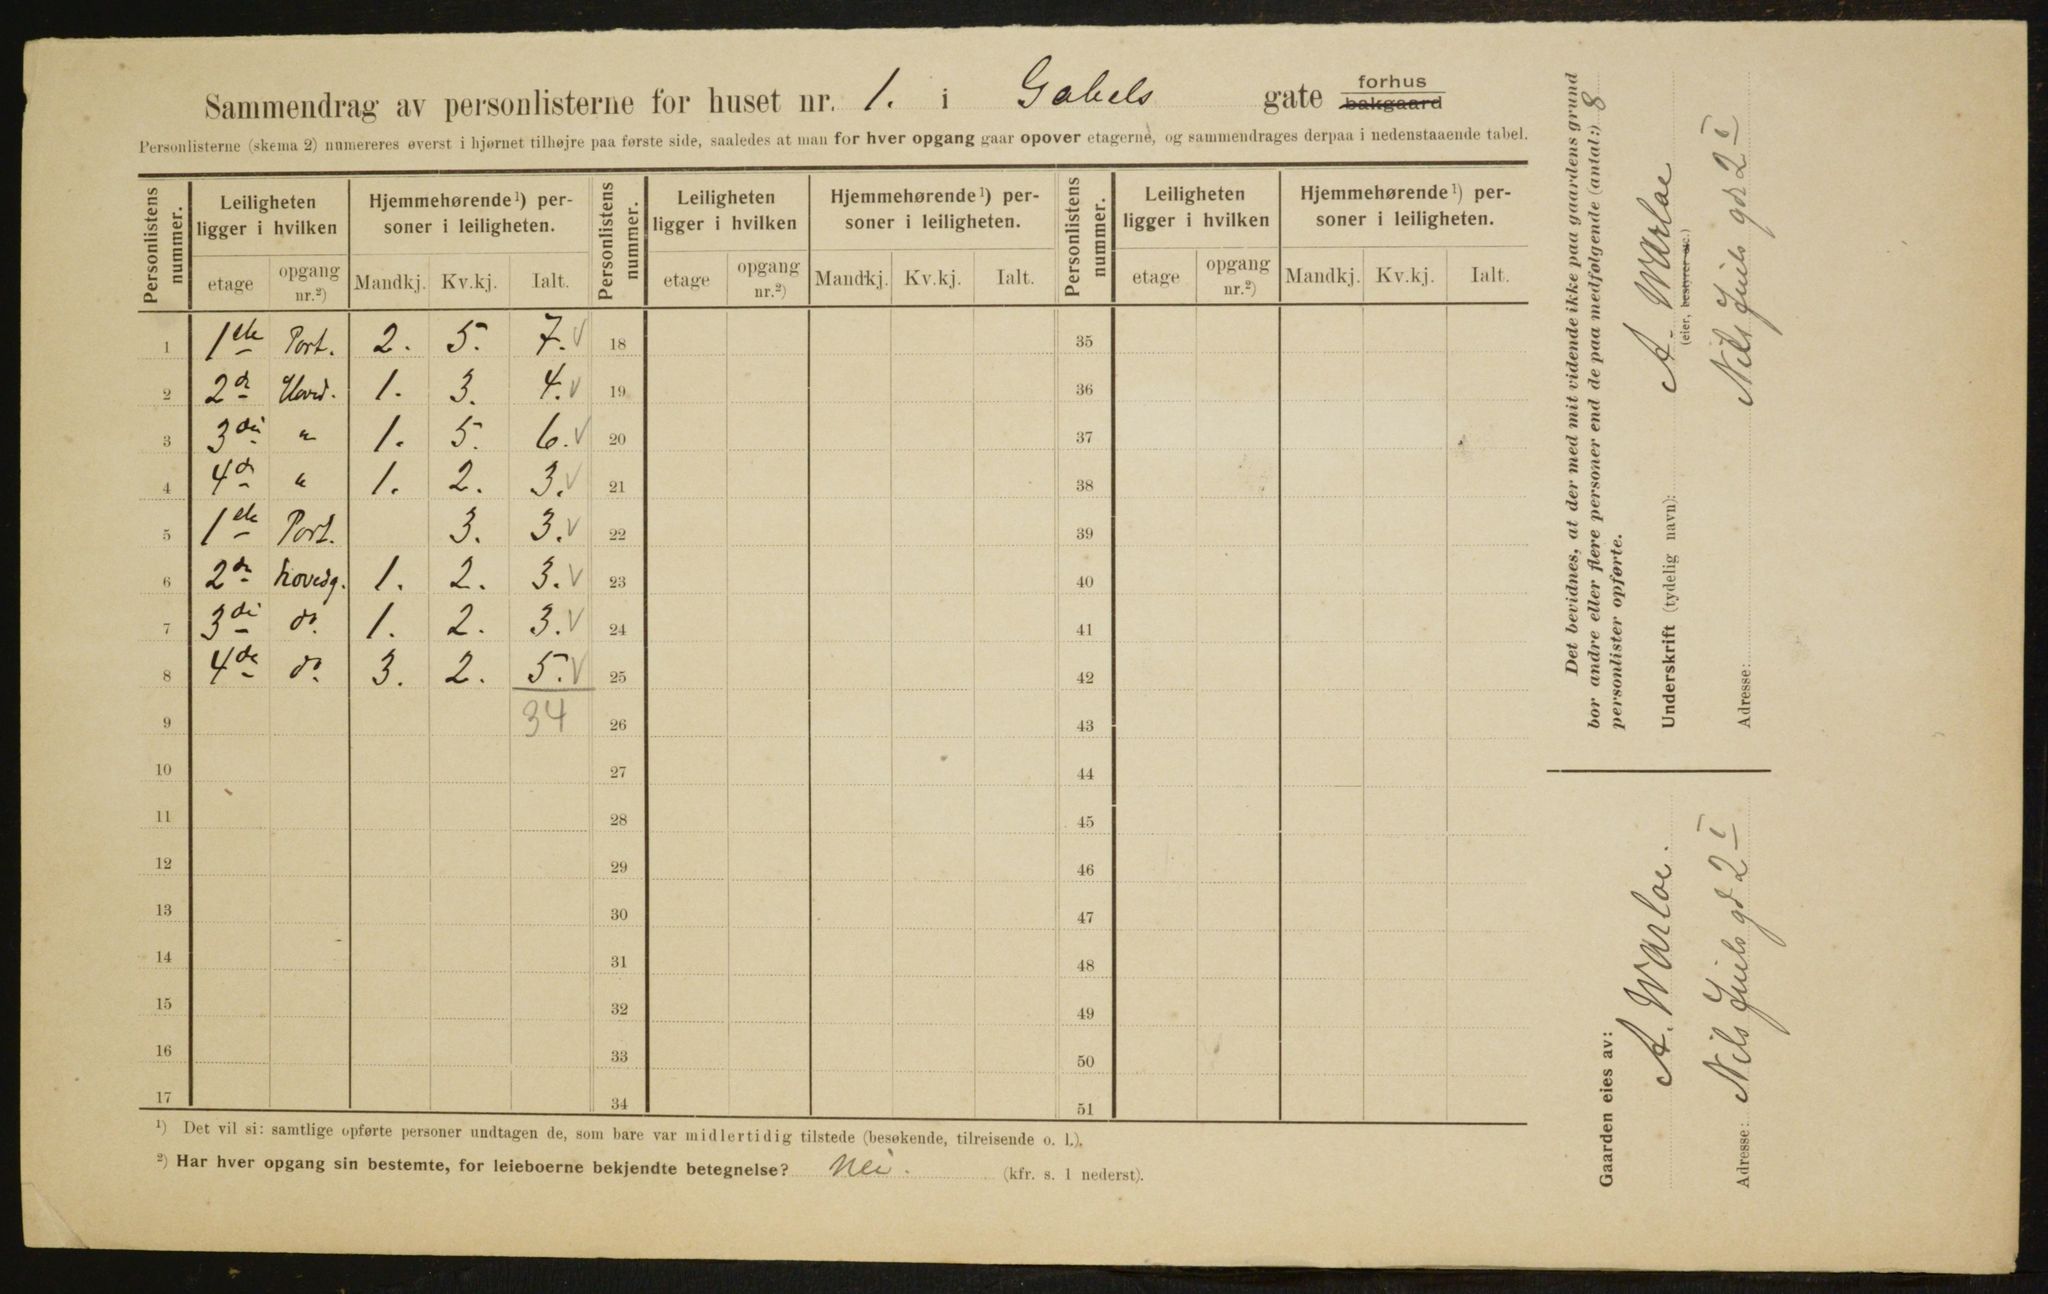 Sammendrag av personlisterne for huset nr. 1. i Gabels gate forhus bakgaard
Personlisterne (skema 2) numereres øverst i hjørnet tilhøjre paa første side, saaledes at man for hver opgang gaar opover etagerne, og sammendrages derpaa i nedenstaaende tabel.
Personlistens nummer. Leiligheten ligger i hvilken Hjemmehørende¹) personer i leiligheten. Personlistens nummer. Leiligheten ligger i hvilken Hjemmehørende¹) personer i leiligheten. Personlistens nummer. Leiligheten ligger i hvilken Hjemmehørende¹) personer i leiligheten.
etage opgang nr.²) Mandkj. Kv.kj. Ialt. etage opgang nr.²) Mandkj. Kv.kj. Ialt. etage opgang nr.²) Mandkj. Kv.kj. Ialt.
1 1ste Port. 2. 5. 7. V 18 35
2 2de Hoved. 1. 3. 4. V 19 36
3 3die " 1. 5. 6. V 20 37
4 4de " 1. 2. 3. V 21 38
5 1ste Port. 3. 3. V 22 39
6 2de hovedg. 1. 2. 3. V 23 40
7 3die do. 1. 2. 3. V 24 41
8 4de do. 3. 2. 5. V 25 42
9 34 26 43
10 27 44
11 28 45
12 29 46
13 30 47
14 31 48
15 32 49
16 33 50
17 34 51
¹) Det vil si: samtlige opførte personer undtagen de, som bare var midlertidig tilstede (besøkende, tilreisende o. l.).
²) Har hver opgang sin bestemte, for leieboerne bekjendte betegnelse? Nei. (kfr. s. 1 nederst).
Det bevidnes, at der med mit vidende ikke paa gaardens grund
bor andre eller flere personer end de paa medfølgende (antal:) 8
personlister opførte.
Underskrift (tydelig navn): A. Warloe
(eier, bestyrer etc.)
Adresse: Nils Juels gd 2 I
Gaarden eies av:
A. Warloe.
Adresse: Nils Juels gd 2 I